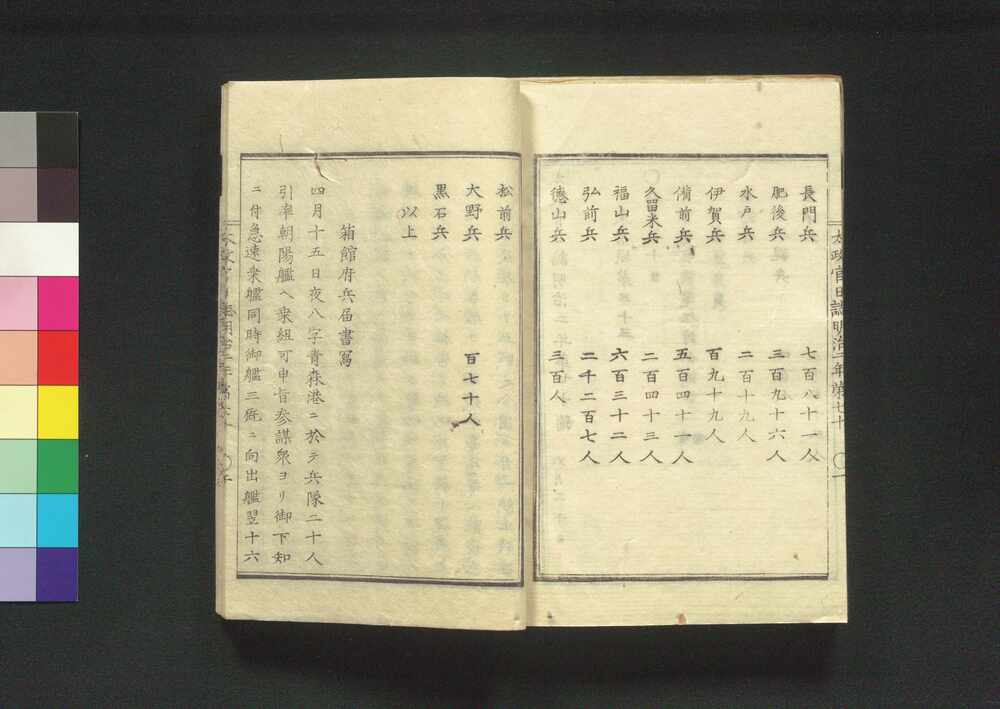 太政官日誌明治二年第七十
長門兵 七百八十一人
肥後兵 三百九十六人
水戸兵 二百十九人
伊賀兵 百九十九人
備前兵 五百四十一人
久留米兵 二百四十三人
福山兵 六百三十二人
弘前兵 二千二百七人
徳山兵 三百人
松前兵
大野兵 百七十人
黒石兵
以上
箱館府兵届書寫
四月十五日夜八字青森港ニ於テ兵隊二十人
引率朝陽艦ヘ乗組可申旨参謀衆ヨリ御下知
ニ付急速乗艦同時御艦三厩ニ向出艦翌十六